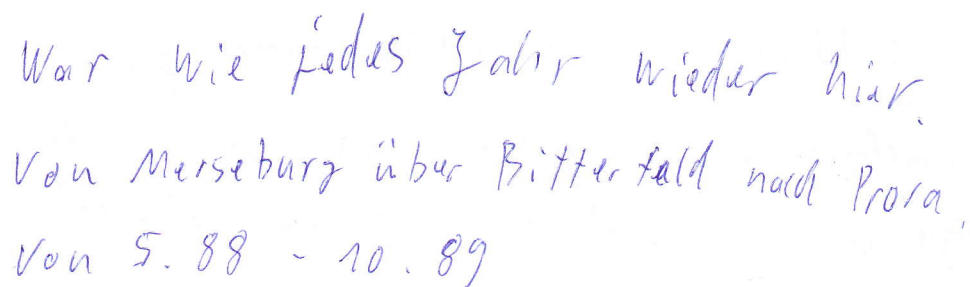 War wie jedes Jahr wieder hier.
Von Merseburg über Bitterfeld nach Prora.
Von 5.88 - 10.89